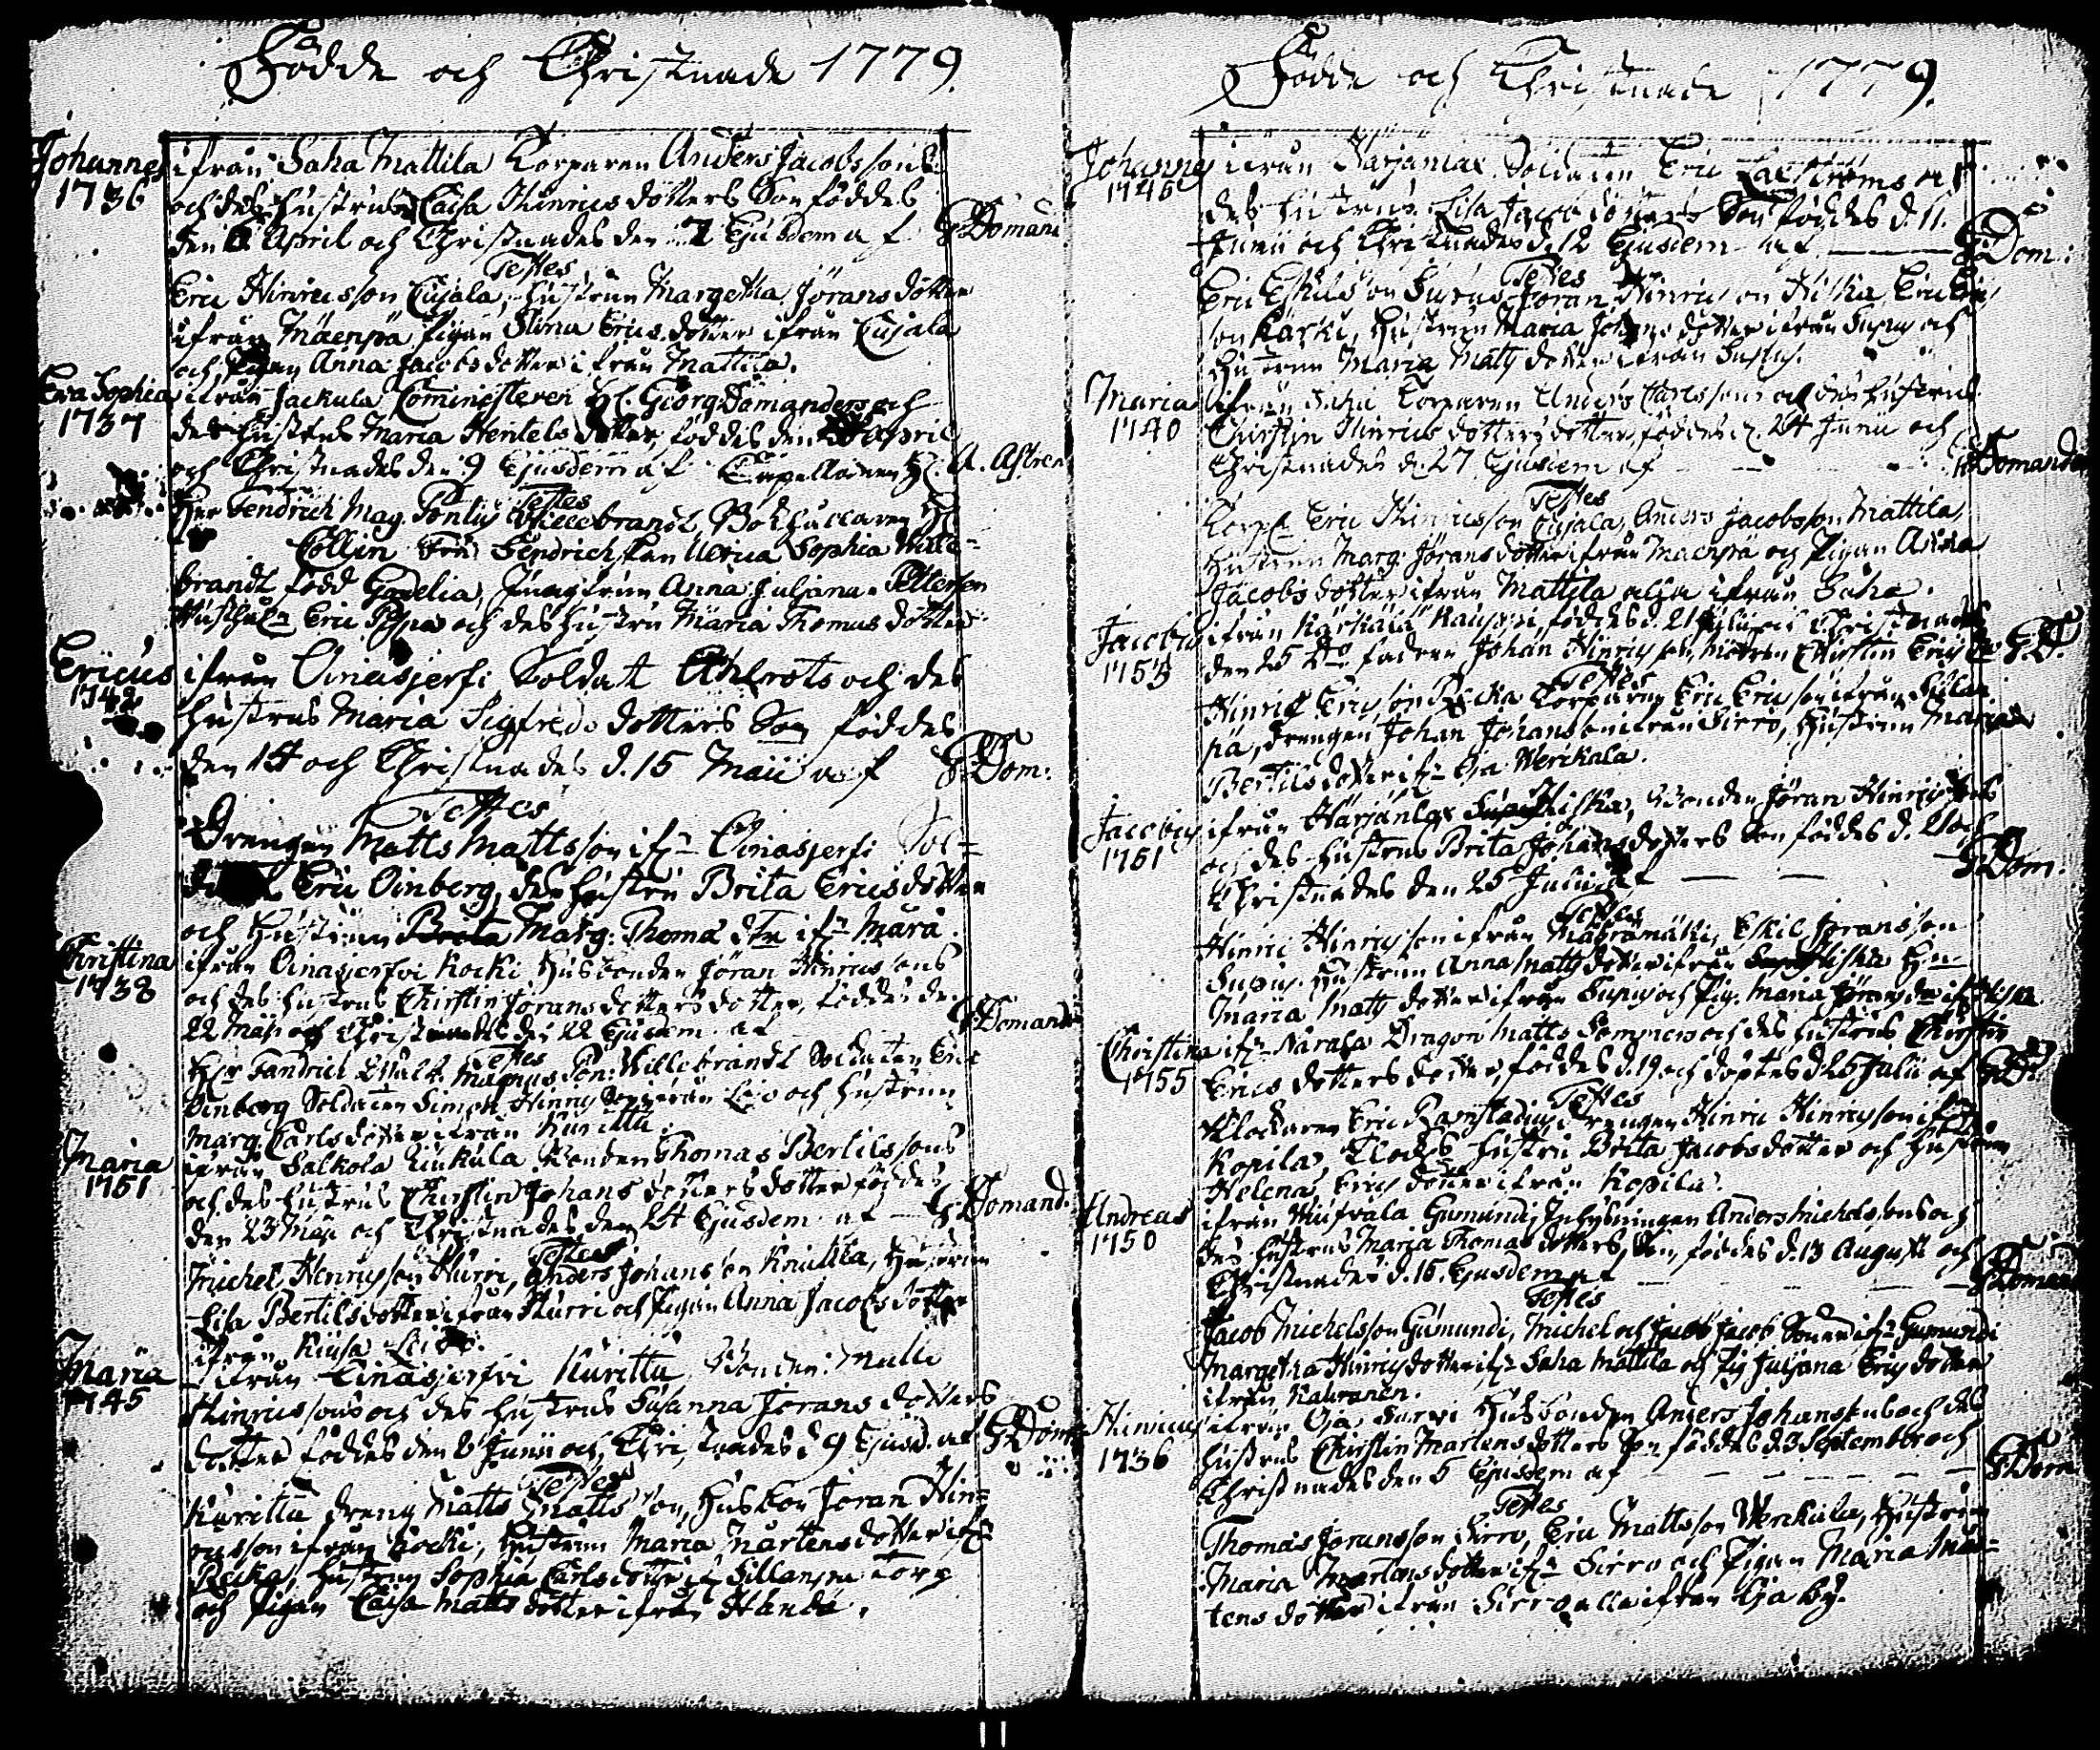 Födde och Christnade 1779.
Johannes
1736
ifrån Saha Mattila Torparen Anders Jacobssons
och des hustrus Caisa Hinrics dotters Son föddes
den 6 April och Christnades den 7 Ejusdem af G Domand
Testes
Eric Hinricsson Cujala, hustrun Margetha Jörans dotter
ifrån Mäenpä pigan Stina Erics dotter ifrån Cujala
och Pigan Anna Jacobs dotter ifrån Mattila.
Eva Sophia
1737
ifrån Jackula Cominesteren H: Georg Domanders och
des hustrus Maria Hentels dotter, föddes den April
och Christnades den 9 Ejusdem af Cappellanen H: A. Astren
Testes
Her Fendrich Mag. Pontus Willebrandt, Bokhållaren H:
Collin Fru Fendrichskan Ulrica Sophia Wille-
brandt född Godelia, Jungfrun Anna Juljana Pettersen
Eric och des hustru Maria Thomas dotter
Ericus
1742
ifrån Oinasjerfi Soldat Ahlrots och des
hustrus Maria Sigfreds dotters Son föddes
den 14 och Christnades d. 15 Maii af G. Dom:
Testes
Drengen Matts Mattsson ifr Oinasjerfi Sol=
Eric Oinberg, des hustru Brita Erics dotter
och hustrun Marg. Thoma dtr ifr Mura.
Christina
1738
ifrån Oinasjerfvi Kocki Husbonden Jöran Hinricssons
och des hustrus Chirstin Jörans dotters dotter, föddes den
22 Maji och Christnades den 22 Ejusdem af G Domand
Testes
Hr Fandrich Magnus Pon: Willebrandt Soldaten Eric
Oinberg Soldaten Simon och hustrun
Marg. Carls dotter ifrån Kuritta.
Maria
1751
ifrån Salkola Kiukula Bonden Thomas Bertilssons
och des hustrus Chirstin Johans dotters dotter föddes
den 23 Maji och Christnades den 24 Ejusdem af G. Domand.
Testes
Michel Henricsson Hurri, Anders Johansson Knuttila, Hustrun
Lisa Bertils dotter ifrån Hurri och Pigan Anna Jacobs dotter
ifrån Kiusa
Maria
1745
ifrån Oinasjerfvi Kuritta Bonden Matts
Hinricssons och des hustrus Susanna Jörans dotters
dotter föddes den 8 Junii och Christnades d 9 Ejusd. af G. Dom
Testes
Kuritta dreng Matts Mattsson, Husbon Jöran Hin=
ricsson ifrån Kocki, Hustrun Maria Mårtens dotter ifr
Recka, hustrun Sophia Carls dotter ifr Sillanpä Torp
och Pigan Caisa Matts dotter ifrån Handa.
Födde och Christnade 1779.
Johannes
1746
ifrån Härjänlax Soldaten Eric Laxströms och
des hustrus Lisa Jacobs dotters Son föddes d. 11.
Junii och Christnades d. 12 Ejusdem af G Dom:
Testes
Eric Eskilsson Supus Jöran Hinricsson Hiska, Eric Erics
son Kärki, Hustrun Maria Johans dotter ifrån Supus och
hustrun Maria Matts dotter ifrån Supus.
Maria
1740
ifrån Saha Torparen Anders Carlssons och des hustrus
Chirstin Hinrics dotters dotter, föddes d. 24 Junii och
Christnades d. 27 Ejusdem af G Domander
Testes
Torp Eric Hinricsson Cujala, Anders Jacobsson Mattila,
Hustrun Marg: Jörans dotter ifrån Maenpä och Pigan Anna
Jacobs dotter ifrån Mattila alla ifrån Saha.
Jacobus
1753
ifrån Kärkälä Kauppi, föddes d. 21 Julii och Christnades
den 25 D:o fadren Johan Hinricsson, Modren Chirstin Erics D: G. D.
Testes
Hinric Ericsson Recka Torparen Eric Ericsson ifrån
pä, drengen Johan Johansson ifrån Sirro, Hustrun Maria
Bertils dotter ifr Oja Werikala.
Jacobus
1751
ifrån Härjänlax Hiska, Bonden Jöran Hinrics sons
och des hustrus Brita Johans dotters Son föddes d. 21 och
Christnades den 25 Julii af G. Dom.
Testes
Hinric Hinricsson ifrån Mägramäki, Eskil Joransson
Supus. Hustrun Anna Matts dotter ifrån Hiska Hu
Maria Matts dotter ifrån Supus och Pig. Maria Jörans dtr ifr Hiska
Christina
1755
ifr Narala Dragon Matts Sommers och des hustrus Chirstin
Erics dotters dotter, föddes d. 19 och döptes d. 25 Julii af G. D.
Testes
Klockaren Eric Ramstadius, Drengen Hinric Hinricsson ifr
Kopila, Klock:s hustru Brita Jacobs dotter och hustrun
Helena Erics dotter ifrån Kopila.
Andreas
1750
ifrån Gumundi, Inhysningen Anders Michelssons och
des hustrus Maria Thomas dotters Son, föddes d. 13 Augusti och
Christnades d. 15. Ejusdem af G Doman
Testes
Jacob Michelsson Gumundi, Michel och Jacob Söner ifr Gumundi
Margetha Hinrics dotter ifr Saha Mattila och Pig Juljana Erics dotter
ifrån Kauranen.
Hinricus
1736
ifrån Oja Sarvi Husbonden Anders Johanssons och des
hustrus Chirstin Mårtens dotters Son föddes d. 3 September och
Christnades den 5 Ejusdem af G. Dom
Testes
Thomas Joransson Sirro, Eric Mattsson Werikala, Hustrun
Maria Mårtens dotter ifr Sirro och Pigan Maria Mår=
tens dotter ifrån Sirro alla ifrån Oja By.